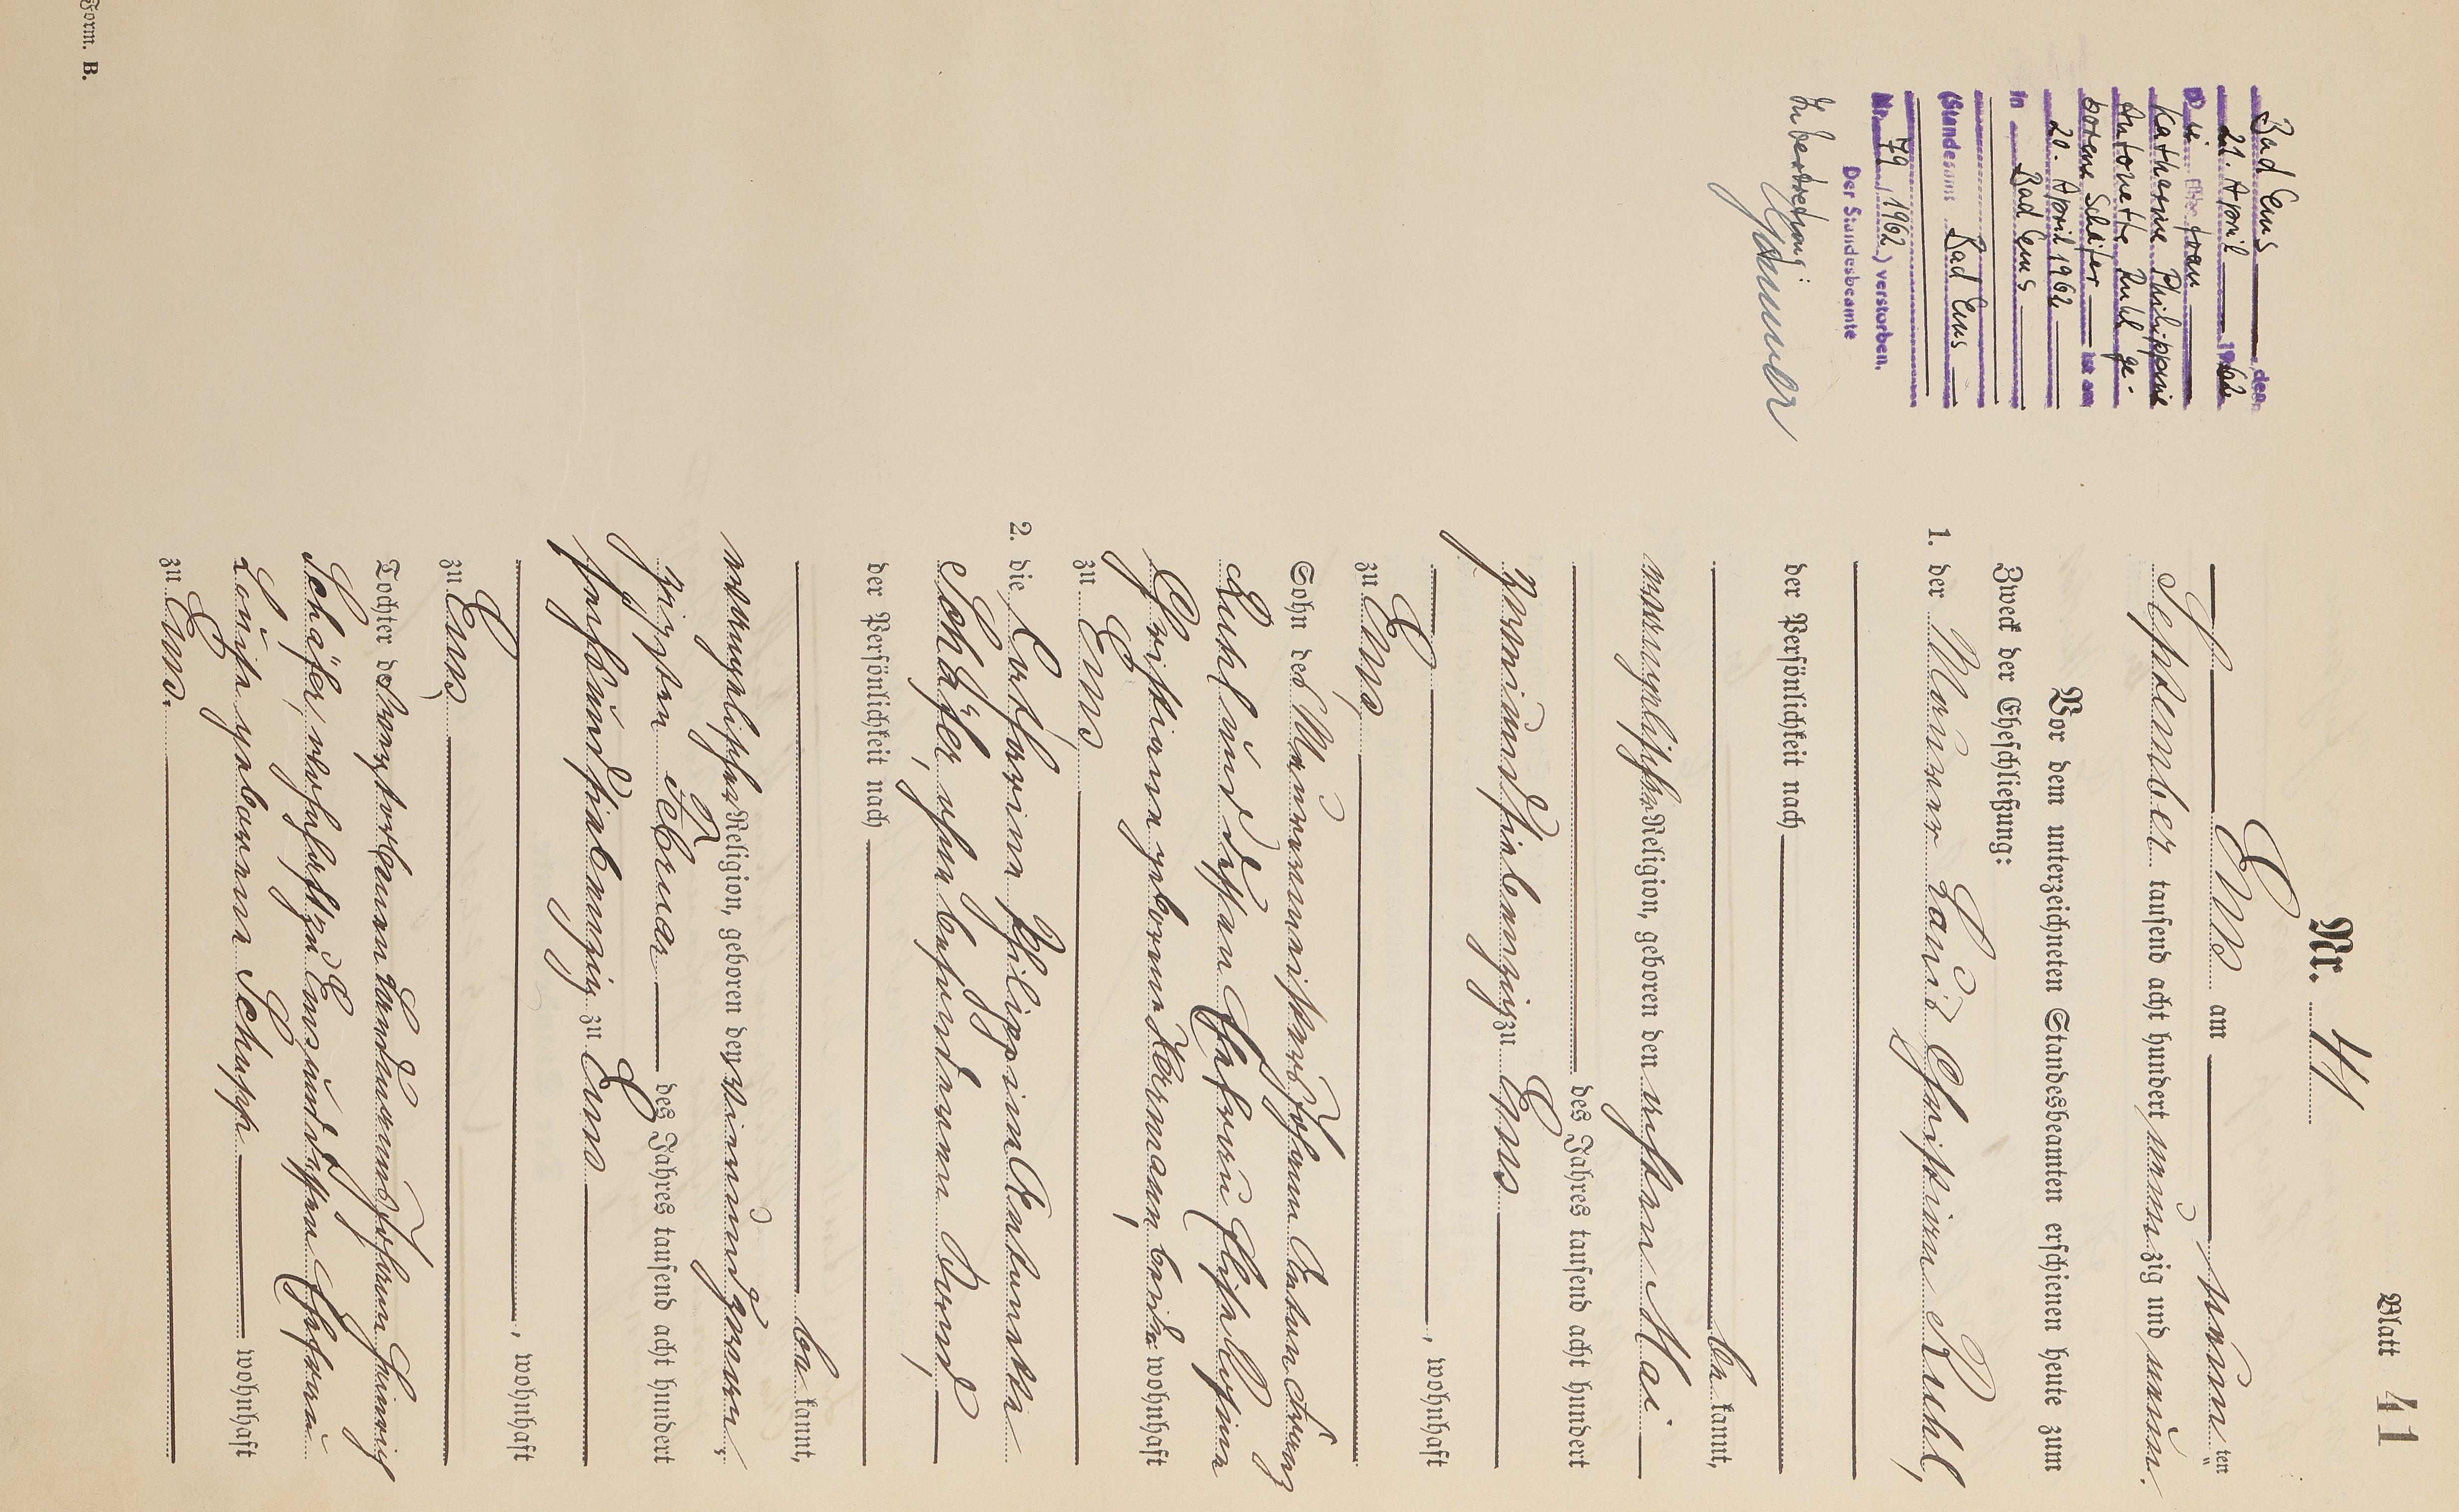 Blatt 41
Nr. 41
Ems am neunten
September tausend acht hundert neunzig und neun.
Vor dem unterzeichneten Standesbeamten erschienen heute zum
Zweck der Eheschließung:
1. der Maurer Louis Christian Ruhl,
der Persönlichkeit nach
be kannt,
evangelischer Religion, geboren den ersten Mai
des Jahres tausend acht hundert
fünfundsiebenzig zu Ems
, wohnhaft
zu Ems,
Sohn des Maurermeisters Johann Anton Franz
Ruhl und dessen Ehefrau Elise Rosina
Christiane geborene Hermann, beide wohnhaft
zu Ems
2. die Katharine Philippine Antonette
Schäfer, ohne besonderen Beruf,
der Persönlichkeit nach
be kannt,
evangelischer Religion, geboren den
zigsten Februar des Jahres tausend acht hundert
fünfundsiebenzig zu Ems
, wohnhaft
zu Ems,
Tochter des verstorbenen Johann Heinrich
Schäfer, wohnhaft zu Ems und dessen Ehefrau
Louise geborene Schupp wohnhaft
zu Ems.
Bad Ems, den
21. April 1962
Die Ehefrau
Katharine Philippine
Antonette Ruhl ge-
borene Schäfer ist am
20. April 1962
in Bad Ems
(Standesamt Bad Ems
Nr. 79 / 1962) verstorben.
Der Standesbeamte
In Vertretung:
Form. B.